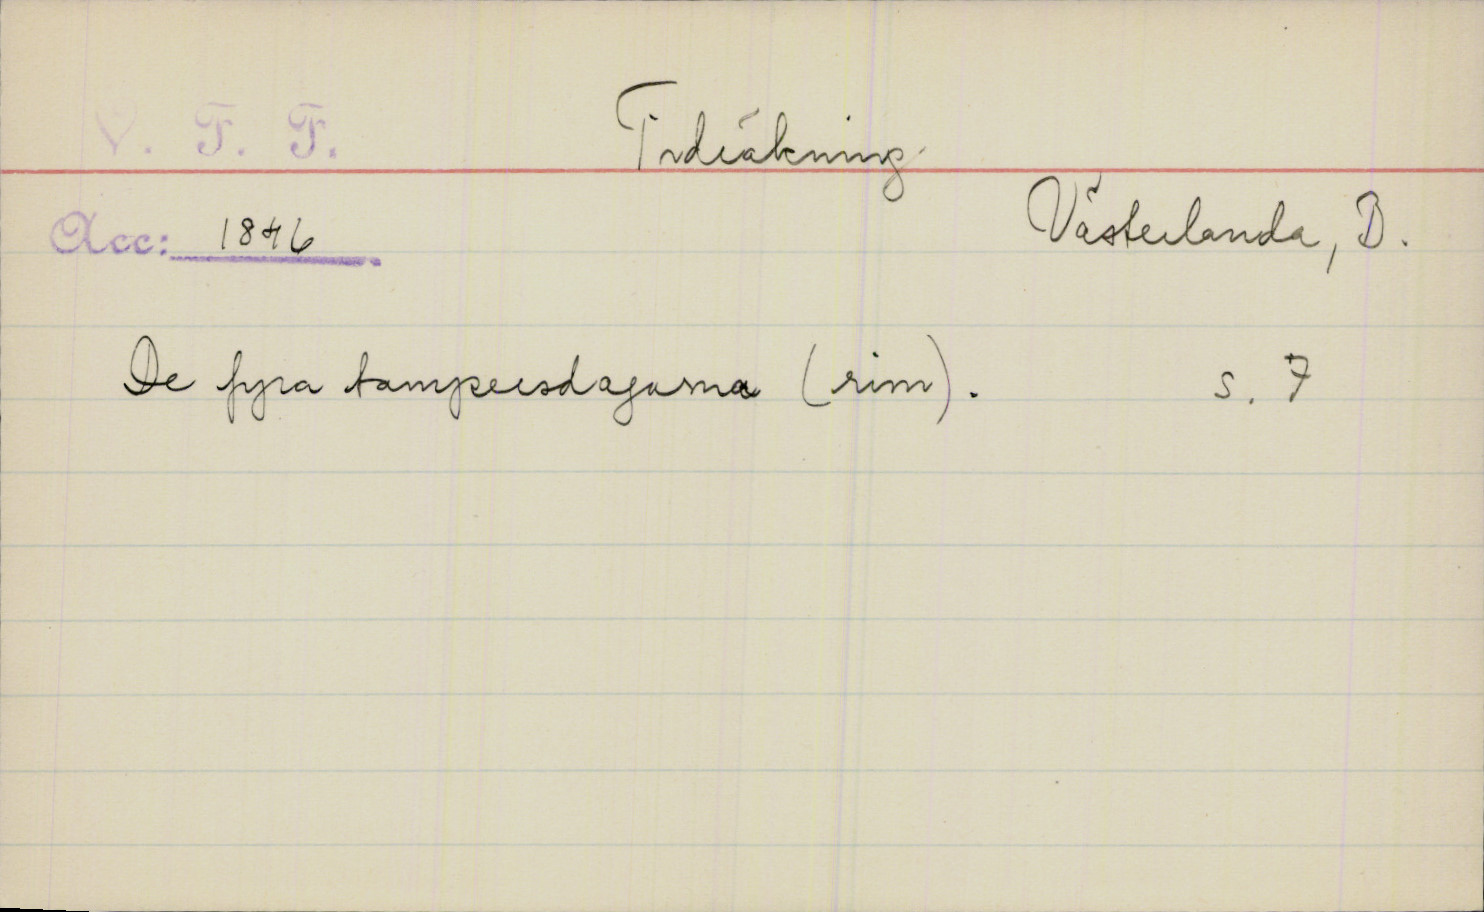 V. F. F.
Tideräkning
Acc: 1846
Västerlanda, B.
De fyra tamperdagarna (rim). s. 7